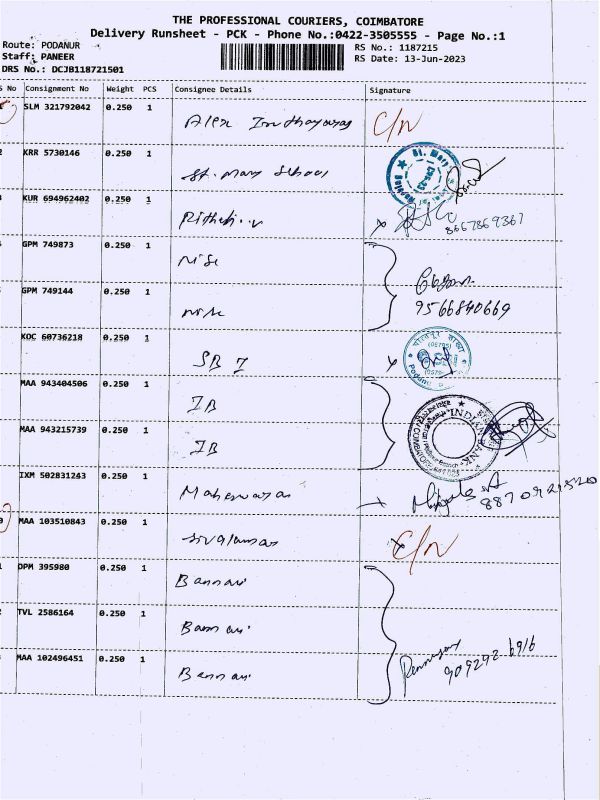 THE PROFESSIONAL COURIERS, COIMBATORE
Delivery Runsheet - PCK - Phone No.:0422-3505555 - Page No.:1
Route: PODANUR
RS No.: 1187215
Staff: PANEER
RS Date: 13-Jun-2023
DRS No.: DCJB118721501
S No Consignment No Weight PCS Consignee Details Signature
SLM 321792042 0.250 1 Alex C/N
2 KRR 5730146 0.250 1 St. mary School
3 KUR 694962402 0.250 1 8667869367
GPM 749873 0.250 1
GPM 749144 0.250 1 9566840669
KOC 60736218 0.250 1 SB I
MAA 943404506 0.250 1 IB
MAA 943215739 0.250 1 IB INDIAN BANK
IXM 502831243 0.250 1 8870921520
MAA 103510843 0.250 1 C/N
DPM 395980 0.250 1 Bannari
TVL 2586164 0.250 1 Bannari
MAA 102496451 0.250 1 Bannari 909292 6916